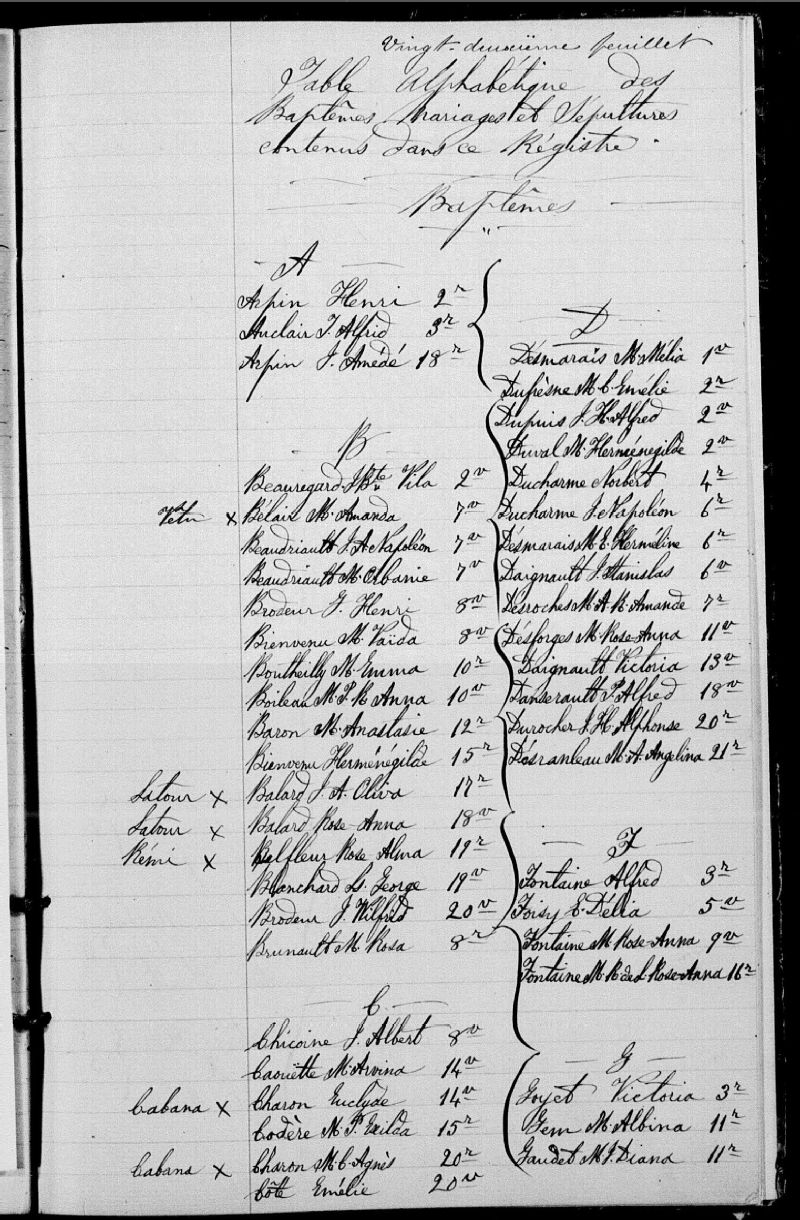 Vingt-deuxième feuillet
Table Alphabétique des
Baptêmes, Mariages et Sépultures
contenus dans ce Régistre.
Baptêmes
"
A
Arpin Henri 2r
Auclair J. Alfrid 3r
Arpin J. Amédé 18r
B
Beauregard J. Bte Vila 2v
x Bélair M. Amanda 7v
Beaudriault J. A. Napoléon 7v
Beaudriault M. Albanie 7v
Brodeur J. Henri 8v
Bienvenu M. Vaïda 8v
Boutheilly M. Emma 10r
Boileau M. P. R. Anna 10v
Baron M. Anastasie 12r
Bienvenu Herménégilde 15r
Latour x Balard J. A. Oliva 17r
Latour x Balard Rose-Anna 18v
Rémi x Belfleur Rose Alma 19r
Blanchard Ls. George 19v
Brodeur J. Wilfrid 20v
Brunault M. Rosa 8r
C
Chicoine J. Albert 8v
Caouëtte M. Arvina 14v
Cabana x Charon Euclyde 14v
Codère M. P. Exilda 15r
Cabana x Charon M. C. Agnès 20r
Côté Emélie 20v
D
Désmarais M. Mélia 1v
Dufrèsne M. C. Emélie 2r
Dupuis J. H. Alfred 2v
Duval M. Herménégilde 2v
Ducharme Norbert 4r
Ducharme J. Napoléon 6r
Desmarais M. E. Herméline 6r
Daignault J. Stanislas 6v
Désroches M. A. R. Amande 7r
Désforges M. Rose-Anna 11v
Daignault Victoria 13v
Danserault P. Alfred 18v
Durocher J. H. Alphonse 20r
Désranleau M. A. Angelina 21r
F
Fontaine Alfred 3r
Foisy E. Délia 5v
Fontaine M. Rose-Anna 9v
Fontaine M. R. de L. Rose-Anna 16r
G
Goyet Victoria 3r
Gem M. Albina 11r
Gaudet M. J. Diana 11r